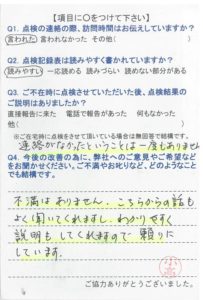 【項目に○をつけて下さい】
Q1. 点検の連絡の際、訪問時間はお伝えしていますか?
言われた 言われなかった その他( )
Q2. 点検記録表は読みやすく書かれていますか?
読みやすい 一応読める 読みづらい 読めない部分がある
Q3. ご不在時に点検させていただいた後、点検結果の
ご説明はありましたか?
直接報告に来た 電話で報告があった 何もなかった
他( )
※ご在宅時に点検をさせて頂いている場合は無回答で結構です。
連絡がなかったということは一度もありません
Q4. 今後の改善の為に、弊社へのご意見やご希望などを
お聞かせください。ご不満やお叱りなど、どのようなこと
でも結構です。
不満はありません。こちらからの話も
よく聞いてくれますし、わかりやすく
説明もしてくれますので頼りに
しています。
ご協力ありがとうございました。